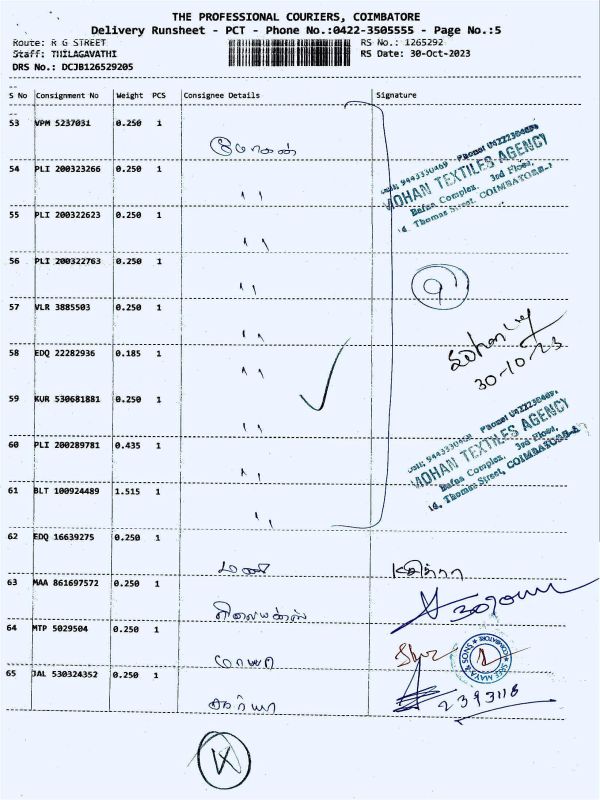 THE PROFESSIONAL COURIERS, COIMBATORE
Delivery Runsheet - PCT - Phone No.:0422-3505555 - Page No.:5
Route: R G STREET RS No.: 1265292
Staff: THILAGAVATHI RS Date: 30-Oct-2023
DRS No.: DCJB126529205
S No Consignment No Weight PCS Consignee Details Signature
53 VPM 5237031 0.250 1
மோகன்
MOHAN TEXTILES AGENCY
Bafna Complex, 3rd Floor,
Thomas Street, COIMBATORE-1
54 PLI 200323266 0.250 1
"
55 PLI 200322623 0.250 1
"
56 PLI 200322763 0.250 1
"
9
57 VLR 3885503 0.250 1
"
30-10-23
58 EDQ 22282936 0.185 1
"
59 KUR 530681881 0.250 1
"
MOHAN TEXTILES AGENCY
Bafna Complex, 3rd Floor,
Thomas Street, COIMBATORE-1
60 PLI 200289781 0.435 1
"
61 BLT 100924489 1.515 1
"
62 EDQ 16639275 0.250 1
மணி
63 MAA 861697572 0.250 1
64 MTP 5029504 0.250 1
மாயா
SREE MAYA & SONS
COIMBATORE
65 JAL 530324352 0.250 1
சூர்யா